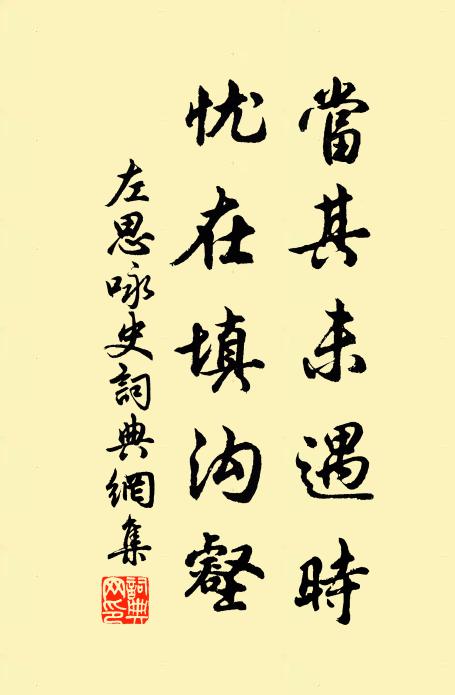 當其未遇時
忧在填沟壑
左思咏史詞典網集
詞典网印